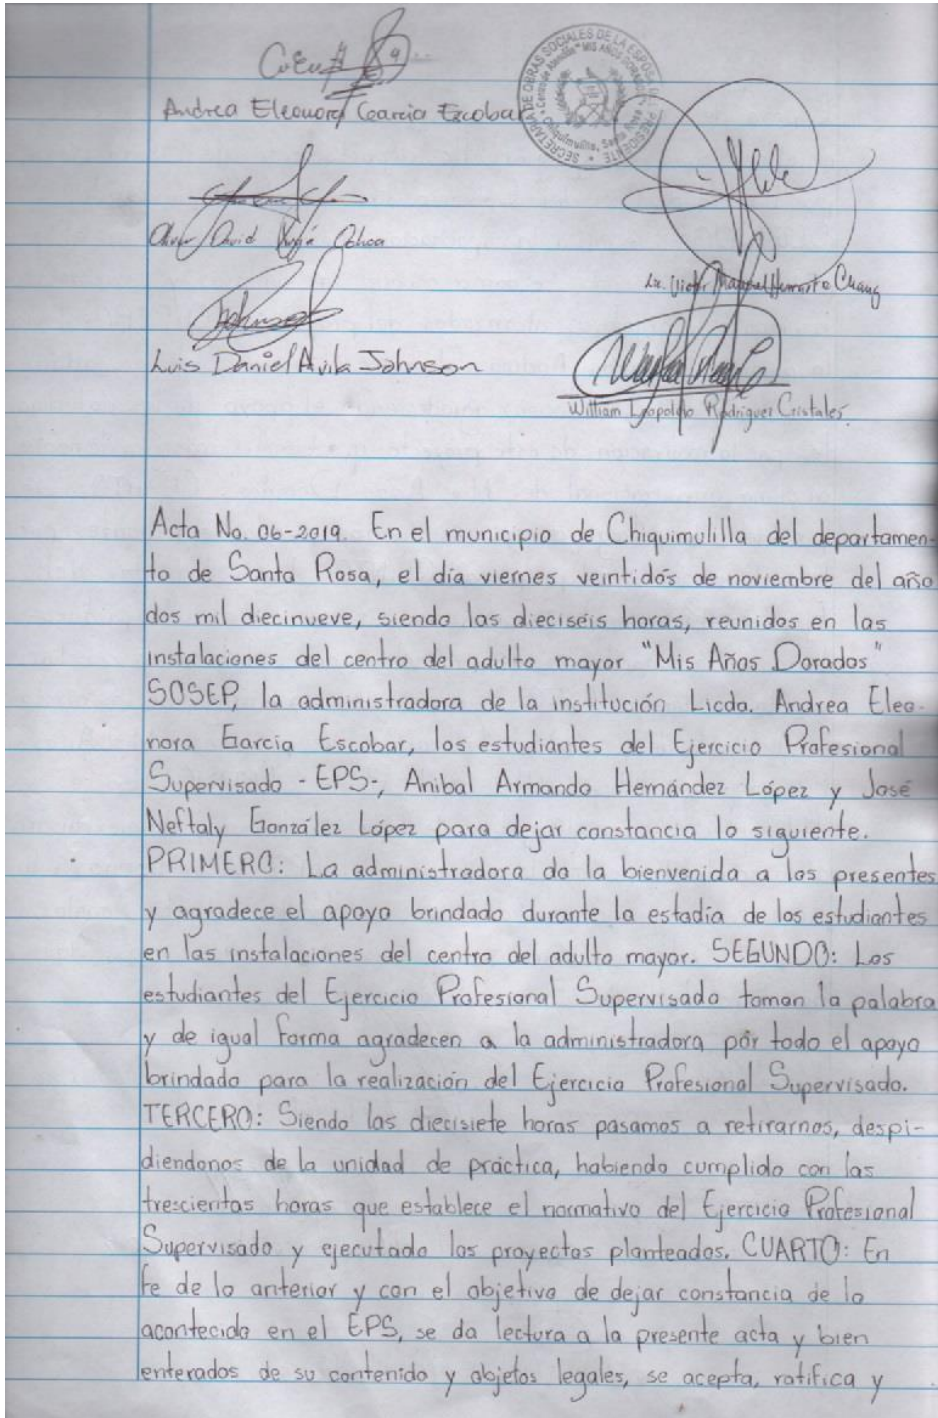 Andrea Eleonora Garcia Escobar
SECRETARIA DE OBRAS SOCIALES DE LA ESPOSA DEL PRESIDENTE
"MIS AÑOS DORADOS"
Chiquimulilla, Santa Rosa
David Ochoa
Lic. Victor Manuel Chang
Luis Daniel Avila Johnson
William Leopoldo Rodriguez Cristales.
Acta No. 06-2019. En el municipio de Chiquimulilla del departamen-
to de Santa Rosa, el día viernes veintidós de noviembre del año
dos mil diecinueve, siendo las dieciséis horas, reunidos en las
instalaciones del centro del adulto mayor "Mis Años Dorados"
SOSEP, la administradora de la institución Licda. Andrea Eleo-
nora Garcia Escobar, los estudiantes del Ejercicio Profesional
Supervisado -EPS-, Anibal Armando Hernández López y José
Neftaly González López para dejar constancia lo siguiente.
PRIMERO: La administradora da la bienvenida a los presentes
y agradece el apoyo brindado durante la estadía de los estudiantes
en las instalaciones del centro del adulto mayor. SEGUNDO: Los
estudiantes del Ejercicio Profesional Supervisado toman la palabra
y de igual forma agradecen a la administradora por todo el apoyo
brindado para la realización del Ejercicio Profesional Supervisado.
TERCERO: Siendo las diecisiete horas pasamos a retirarnos, despi-
diendonos de la unidad de práctica, habiendo cumplido con las
trescientas horas que establece el normativo del Ejercicio Profesional
Supervisado y ejecutado los proyectos planteados. CUARTO: En
fe de lo anterior y con el objetivo de dejar constancia de lo
acontecido en el EPS, se da lectura a la presente acta y bien
enterados de su contenido y objetos legales, se acepta, ratifica y